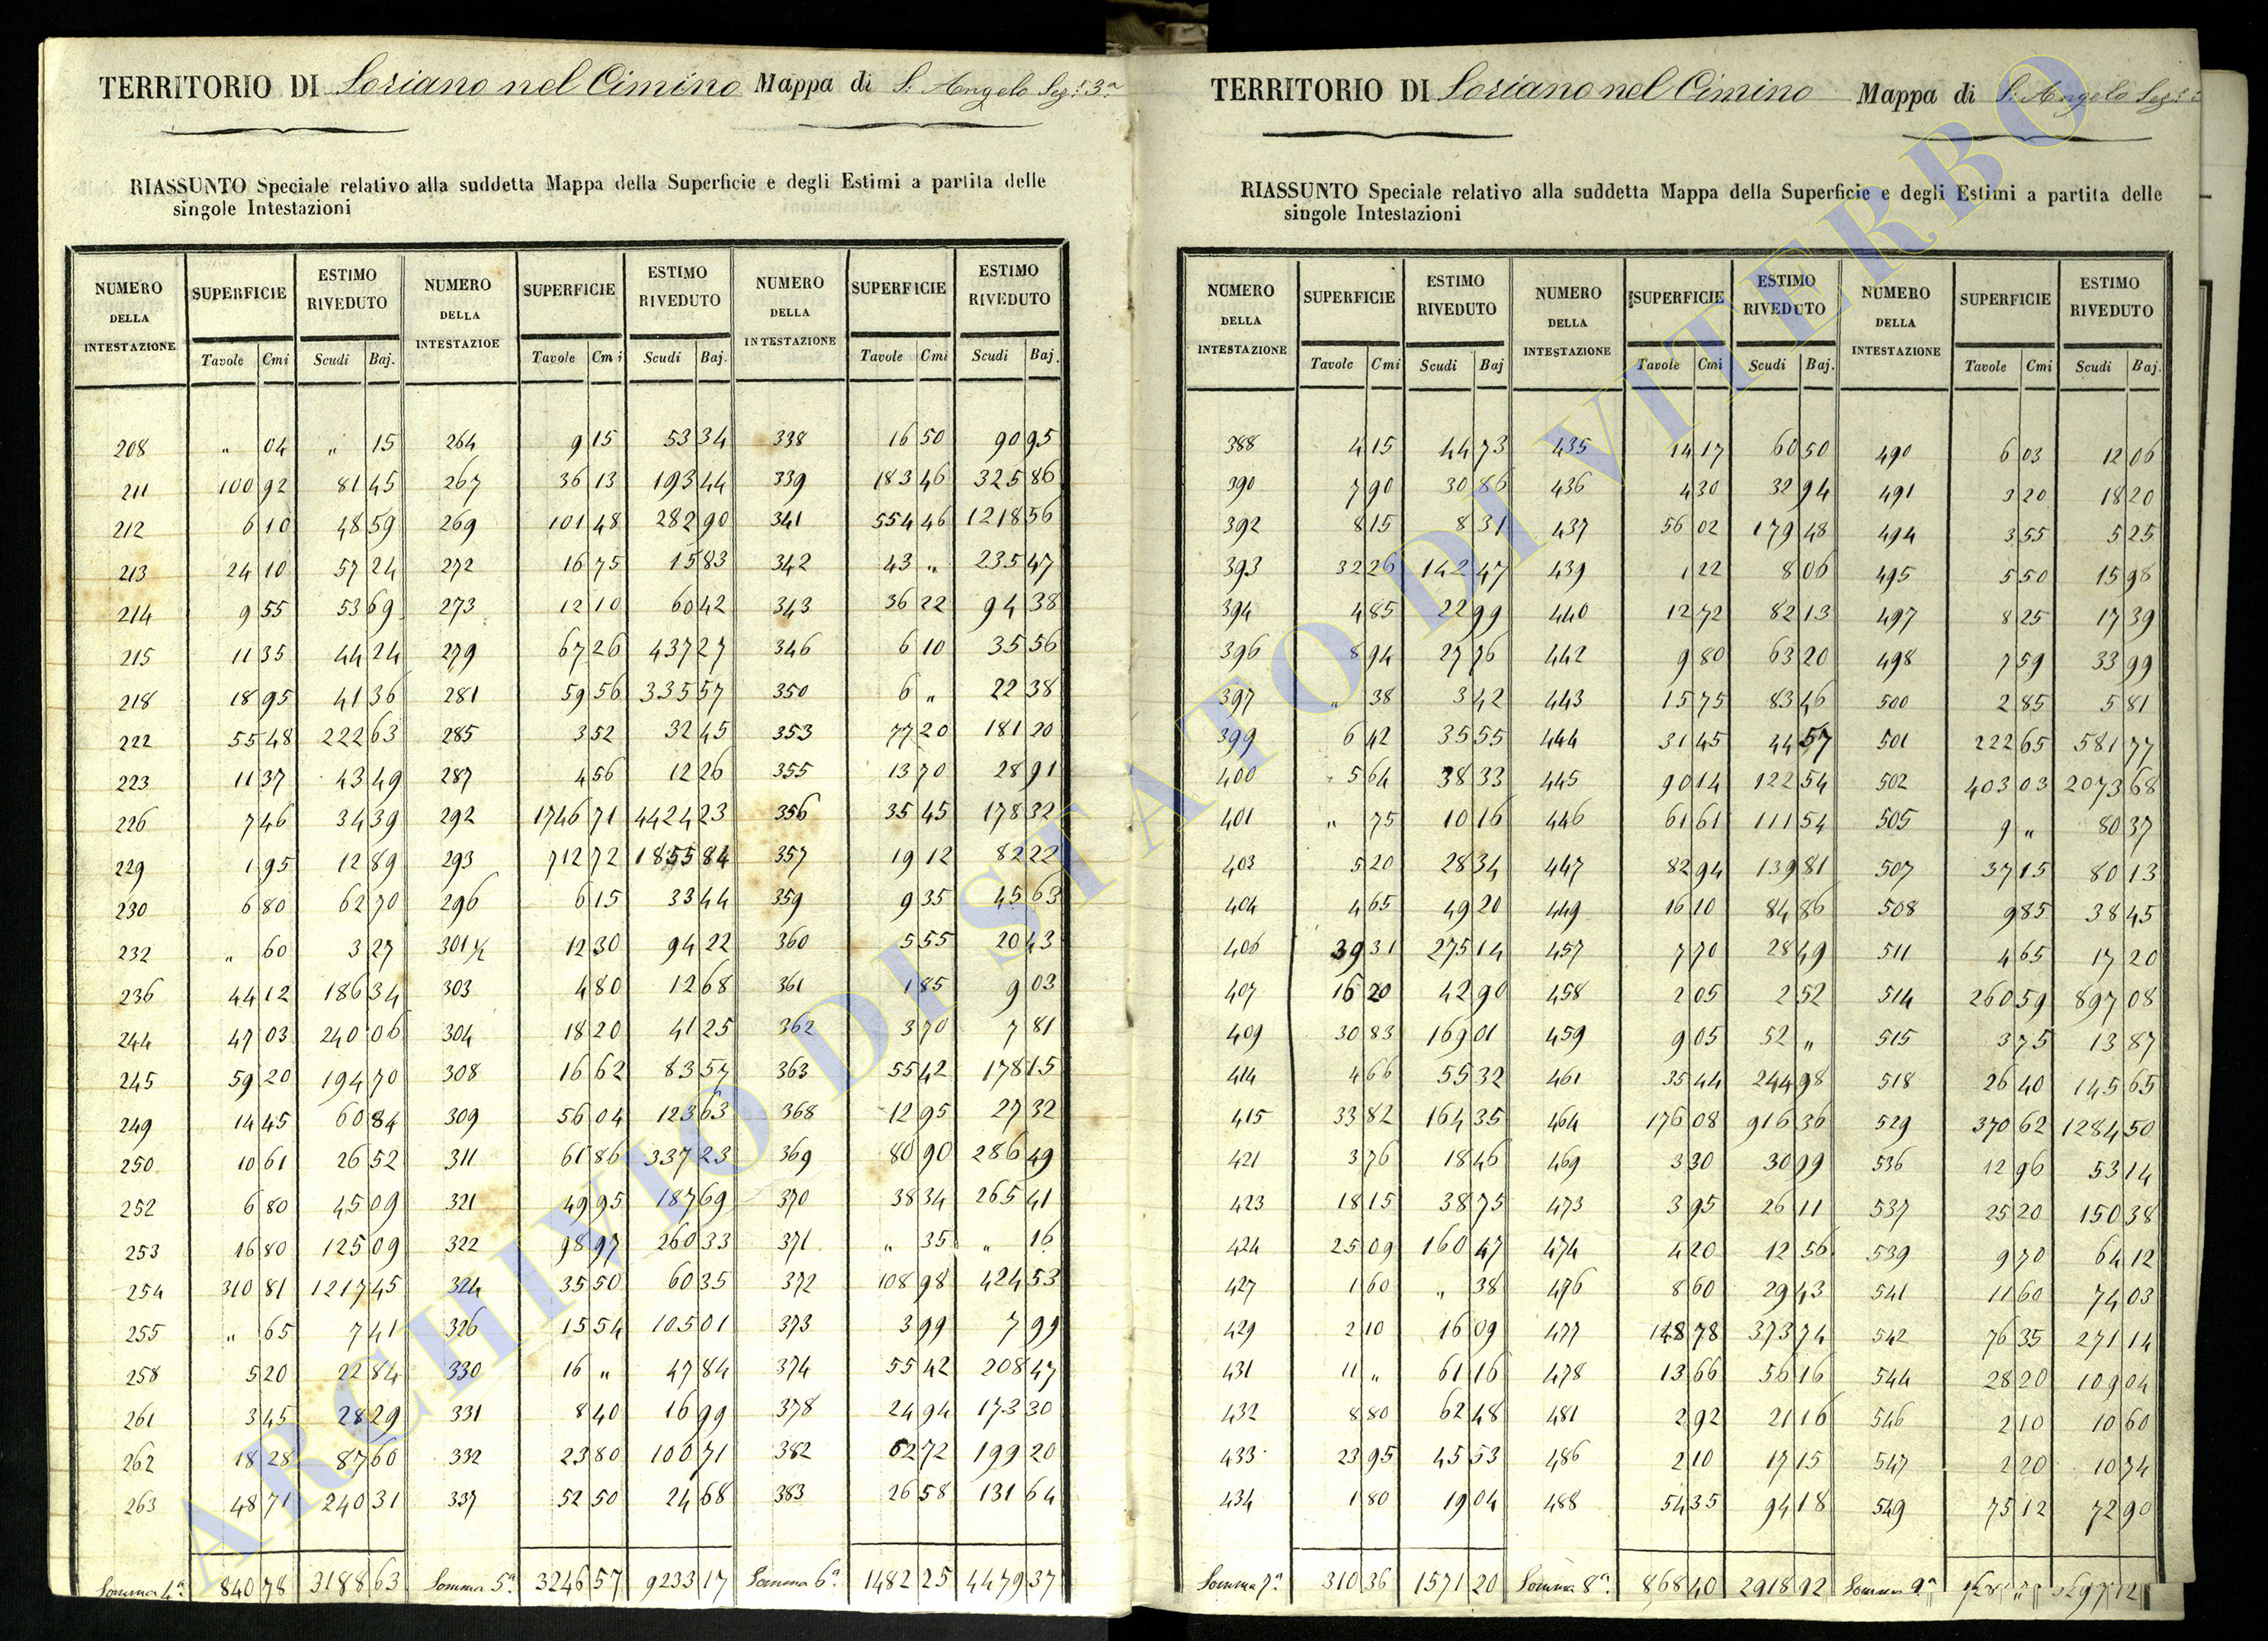 TERRITORIO DI Soriano nel Cimino Mappa di S. Angelo Sez. 3ª
RIASSUNTO Speciale relativo alla suddetta Mappa della Superficie e degli Estimi a partita delle
singole Intestazioni
NUMERO DELLA INTESTAZIONE SUPERFICIE ESTIMO RIVEDUTO NUMERO DELLA INTESTAZIOE SUPERFICIE ESTIMO RIVEDUTO NUMERO DELLA INTESTAZIONE SUPERFICIE ESTIMO RIVEDUTO
Tavole Cmi Scudi Baj. Tavole Cmi Scudi Baj. Tavole Cmi Scudi Baj.
208 " 04 " 15 264 9 15 53 34 338 16 50 90 95
211 100 92 81 45 267 36 13 193 44 339 183 46 325 86
212 6 10 48 59 269 101 48 282 90 341 554 46 1218 56
213 24 10 57 24 272 16 75 15 83 342 43 " 235 47
214 9 55 53 69 273 12 10 60 42 343 36 22 94 38
215 11 35 44 24 279 67 26 437 27 346 6 10 35 56
218 18 95 41 36 281 59 56 335 57 350 6 " 22 38
222 55 48 222 63 285 3 52 32 45 353 77 20 181 20
223 11 37 43 49 287 4 56 12 26 355 13 70 28 91
226 7 46 34 39 292 1746 71 4424 23 356 35 45 178 32
229 1 95 12 89 293 712 72 1855 84 357 19 12 82 22
230 6 80 62 70 296 6 15 33 44 359 9 35 45 63
232 " 60 3 27 301 1/2 12 30 94 22 360 5 55 20 43
236 44 12 186 34 303 4 80 12 68 361 1 85 9 03
244 47 03 240 06 304 18 20 41 25 362 3 70 7 81
245 59 20 194 70 308 16 62 83 57 363 55 42 178 15
249 14 45 60 84 309 56 04 123 63 368 12 95 27 32
250 10 61 26 52 311 61 86 337 23 369 80 90 286 49
252 6 80 45 09 321 49 95 187 69 370 38 34 265 41
253 16 80 125 09 322 98 97 260 33 371 " 35 " 16
254 310 81 1217 45 324 35 50 60 35 372 108 98 424 53
255 " 65 7 41 326 15 54 105 01 373 3 99 7 99
258 5 20 22 84 330 16 " 47 84 374 55 42 208 47
261 3 45 28 29 331 8 40 16 99 378 24 94 173 30
262 18 28 87 60 332 23 80 100 71 382 62 72 199 20
263 48 71 240 31 337 52 50 24 68 383 26 58 131 64
Somma 4ª 840 78 3188 63 Somma 5ª 3246 57 9233 17 Somma 6ª 1482 25 4479 37
TERRITORIO DI Soriano nel Cimino Mappa di S. Angelo Sez.
RIASSUNTO Speciale relativo alla suddetta Mappa della Superficie e degli Estimi a partita delle
singole Intestazioni
NUMERO DELLA INTESTAZIONE SUPERFICIE ESTIMO RIVEDUTO NUMERO DELLA INTESTAZIONE SUPERFICIE ESTIMO RIVEDUTO NUMERO DELLA INTESTAZIONE SUPERFICIE ESTIMO RIVEDUTO
Tavole Cmi Scudi Baj Tavole Cmi Scudi Baj. Tavole Cmi Scudi Baj.
388 4 15 44 73 435 14 17 60 50 490 6 03 12 06
390 7 90 30 86 436 4 30 32 94 491 3 20 18 20
392 8 15 8 31 437 56 02 179 48 494 3 55 5 25
393 32 26 142 47 439 1 22 8 06 495 5 50 15 98
394 4 85 22 99 440 12 72 82 13 497 8 25 17 39
396 8 94 27 76 442 9 80 63 20 498 7 59 33 99
397 " 38 3 42 443 15 75 83 46 500 2 85 5 81
399 6 42 35 55 444 31 45 44 57 501 222 65 581 77
400 5 64 38 33 445 90 14 122 54 502 403 03 2073 68
401 " 75 10 16 446 61 61 111 54 505 9 " 80 37
403 5 20 28 34 447 82 94 139 81 507 37 15 80 13
404 4 65 49 20 449 16 10 84 86 508 9 85 38 45
406 39 31 275 14 457 7 70 28 49 511 4 65 17 20
407 16 20 42 90 458 2 05 2 52 514 260 59 897 08
409 30 83 169 01 459 9 05 52 " 515 3 75 13 87
414 4 66 55 32 461 35 44 244 98 518 26 40 145 65
415 33 82 164 35 464 176 08 916 36 529 370 62 1284 50
421 3 76 18 46 469 3 30 30 99 536 12 96 53 14
423 18 15 38 75 473 3 95 26 11 537 25 20 150 38
424 25 09 160 47 474 4 20 12 56 539 9 70 64 12
427 1 60 " 38 476 8 60 29 43 541 11 60 74 03
429 2 10 16 09 477 148 78 373 74 542 76 35 271 14
431 11 " 61 16 478 13 66 56 16 544 28 20 109 04
432 8 80 62 48 481 2 92 21 16 546 2 10 10 60
433 23 95 45 53 486 2 10 17 15 547 2 20 10 74
434 1 80 19 04 488 54 35 94 18 549 75 12 72 90
Somma 7ª 310 36 1571 20 Somma 8ª 868 40 2918 92 Somma 9ª
ARCHIVIO DI STATO DI VITERBO